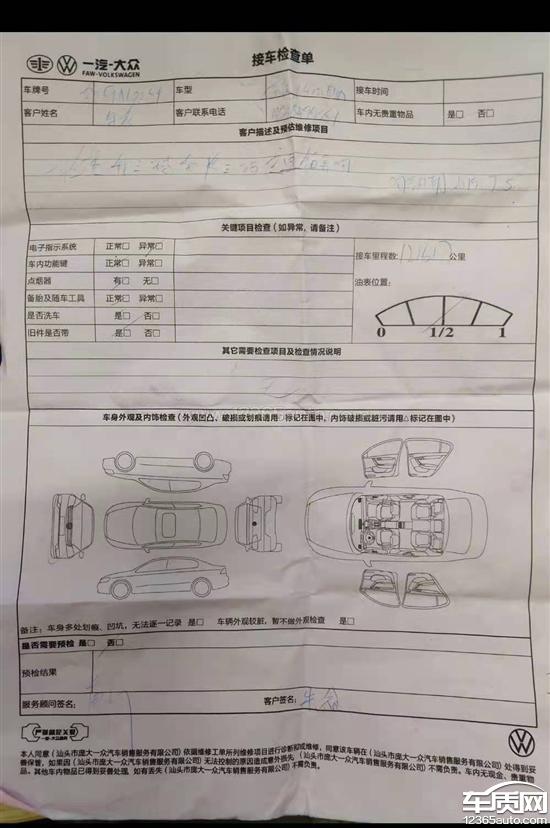 一汽-大众
FAW-VOLKSWAGEN
接车检查单
车牌号 车型 接车时间
客户姓名 客户联系电话 车内无贵重物品 是□ 否□
客户描述及预估维修项目
关键项目检查（如异常，请备注）
电子指示系统 正常□ 异常□
接车里程数: 公里
车内功能键 正常□ 异常□
点烟器 有□ 无□
油表位置:
备胎及随车工具 正常□ 异常□
是否洗车 是□ 否□
旧件是否带 是□ 否□
0 1/2 1
其它需要检查项目及检查情况说明
车身外观及内饰检查（外观凹凸、破损或划痕请用 标记在图中，内饰破损或脏污请用△标记在图中）
备注：车身多处划痕、凹坑，无法逐一记录 是□ 车辆外观较脏，暂不做外观检查 是□
是否需要预检 是□ 否□
预检结果
服务顾问签名: 客户签名:
本人同意（汕头市庞大一众汽车销售服务有限公司）依据维修工单所列维修项目进行诊断抑或维修，同意该车辆在（汕头市庞大一众汽车销售服务有限公司）处得到妥
善保管，如果因（汕头市庞大一众汽车销售服务有限公司）无法控制的原因造成意外损失（汕头市庞大一众汽车销售服务有限公司）不需负责。车内无现金、贵重物
品。其他车内物品已得到妥善处理，如有丢失（汕头市庞大一众汽车销售服务有限公司）不需负责。
车质网
12365auto.com